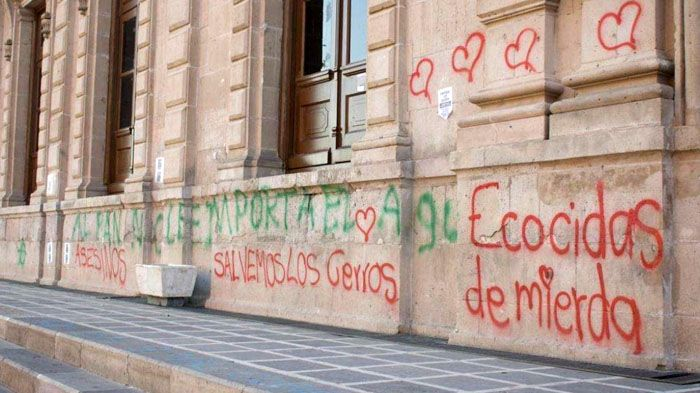 AL PAN NO LE IMPORTA EL AgU
ASESINOS
SALVEMOS LOS Cerros
Ecocidas
de mierda